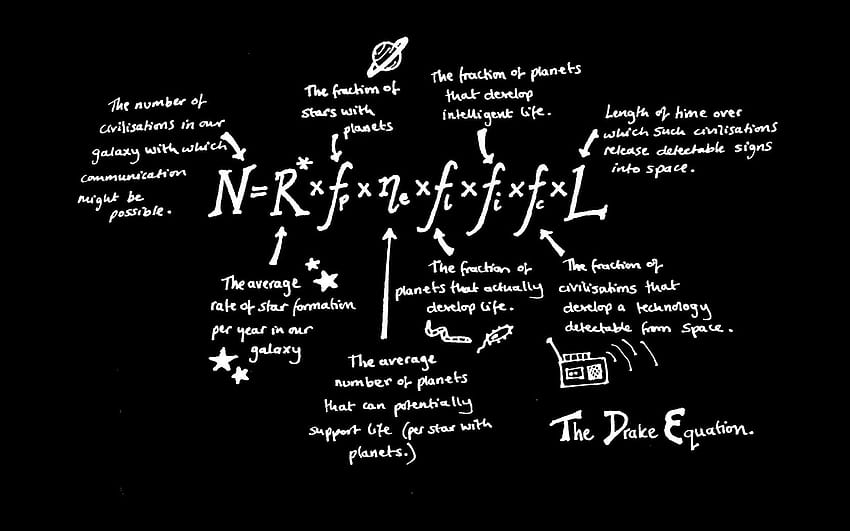 The number of
civilisations in our
galaxy with which
communication
might be
possible.
The fraction of
stars with
planets
The fraction of planets
that develop
intelligent life.
Length of time over
which such civilisations
release detectable signs
into space.
N=R*×fp×ηe×fl×fi×fc×L
The average
rate of star formation
per year in our
galaxy
The average
number of planets
that can potentially
support life (per star with
planets.)
The fraction of
planets that actually
develop life.
The fraction of
civilisations that
develop a technology
detectable from space.
The Drake Equation.